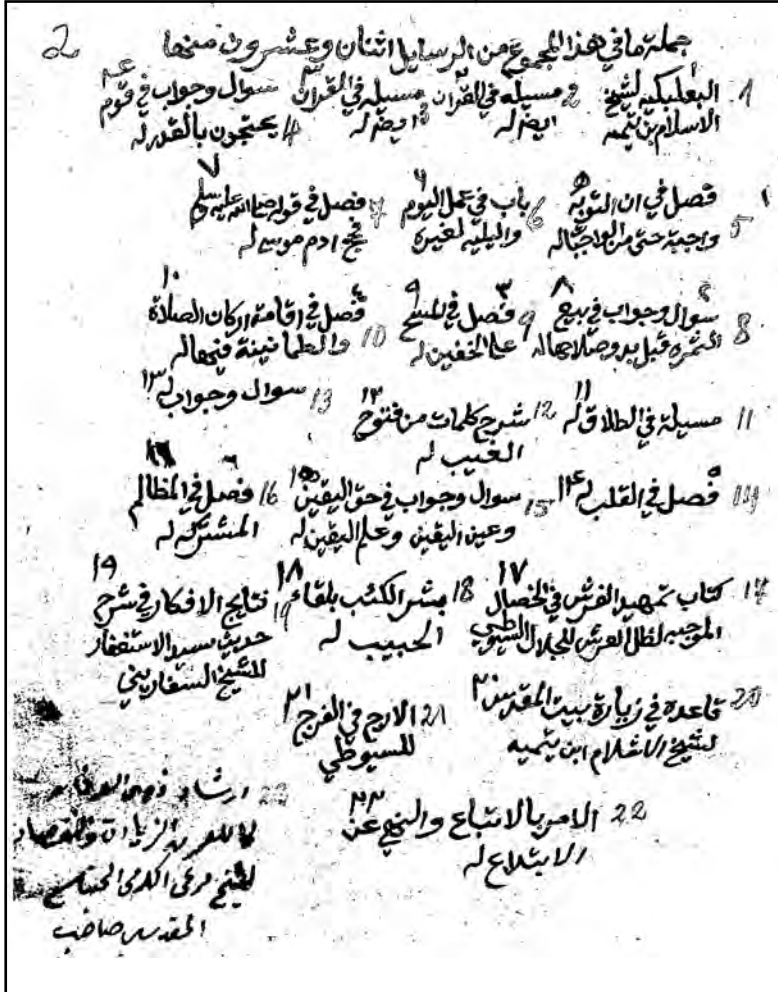 2
جملة ما في هذا المجموع من الرسايل اثنان وعشرون منها
1 البعلبكيه لشيخ الاسلام بن تيميه
2 مسيله في القران ايضا له
3 مسيله في القران ايضا له
4 سوال وجواب في قوم يحتجون بالقدر له
5 فصل في ان التوبة واجبة حتى من الواجبات له
6 باب في عمل اليوم والليله لغيره
7 فصل في قوله صلى الله عليه وسلم فحج ادم موسى له
8 سوال وجواب في بيع الثمره قبل بدو صلاحها له
9 فصل في المسح على الخفين له
10 فصل في اقامة اركان الصلاة والطمانينة فيها له
11 مسيلة في الطلاق له
12 شرح كلمات من فتوح الغيب له
13 سوال وجواب له
14 فصل في القلب له
15 سوال وجواب في حق اليقين وعين اليقين وعلم اليقين له
16 فصل في المظالم المشتركه له
17 كتاب تمهيد الفرش في الخصال الموجبه لظل العرش للجلال السيوطي
18 بشر الكئب بلقاء الحبيب له
19 نتايج الافكار في شرح حديث سيد الاستغفار للشيخ السفاريني
20 قاعده في زيارة بيت المقدس لشيخ الاسلام ابن تيميه
21 الارج في الفرج للسيوطي
22 الامر بالاتباع والنهي عن الابتداع له
22 ارشاد ذوي العرفان
لما للعمر من الزيادة والنقصان
للشيخ مرعي الكرمي الحنبلي
المقدسي صاحب